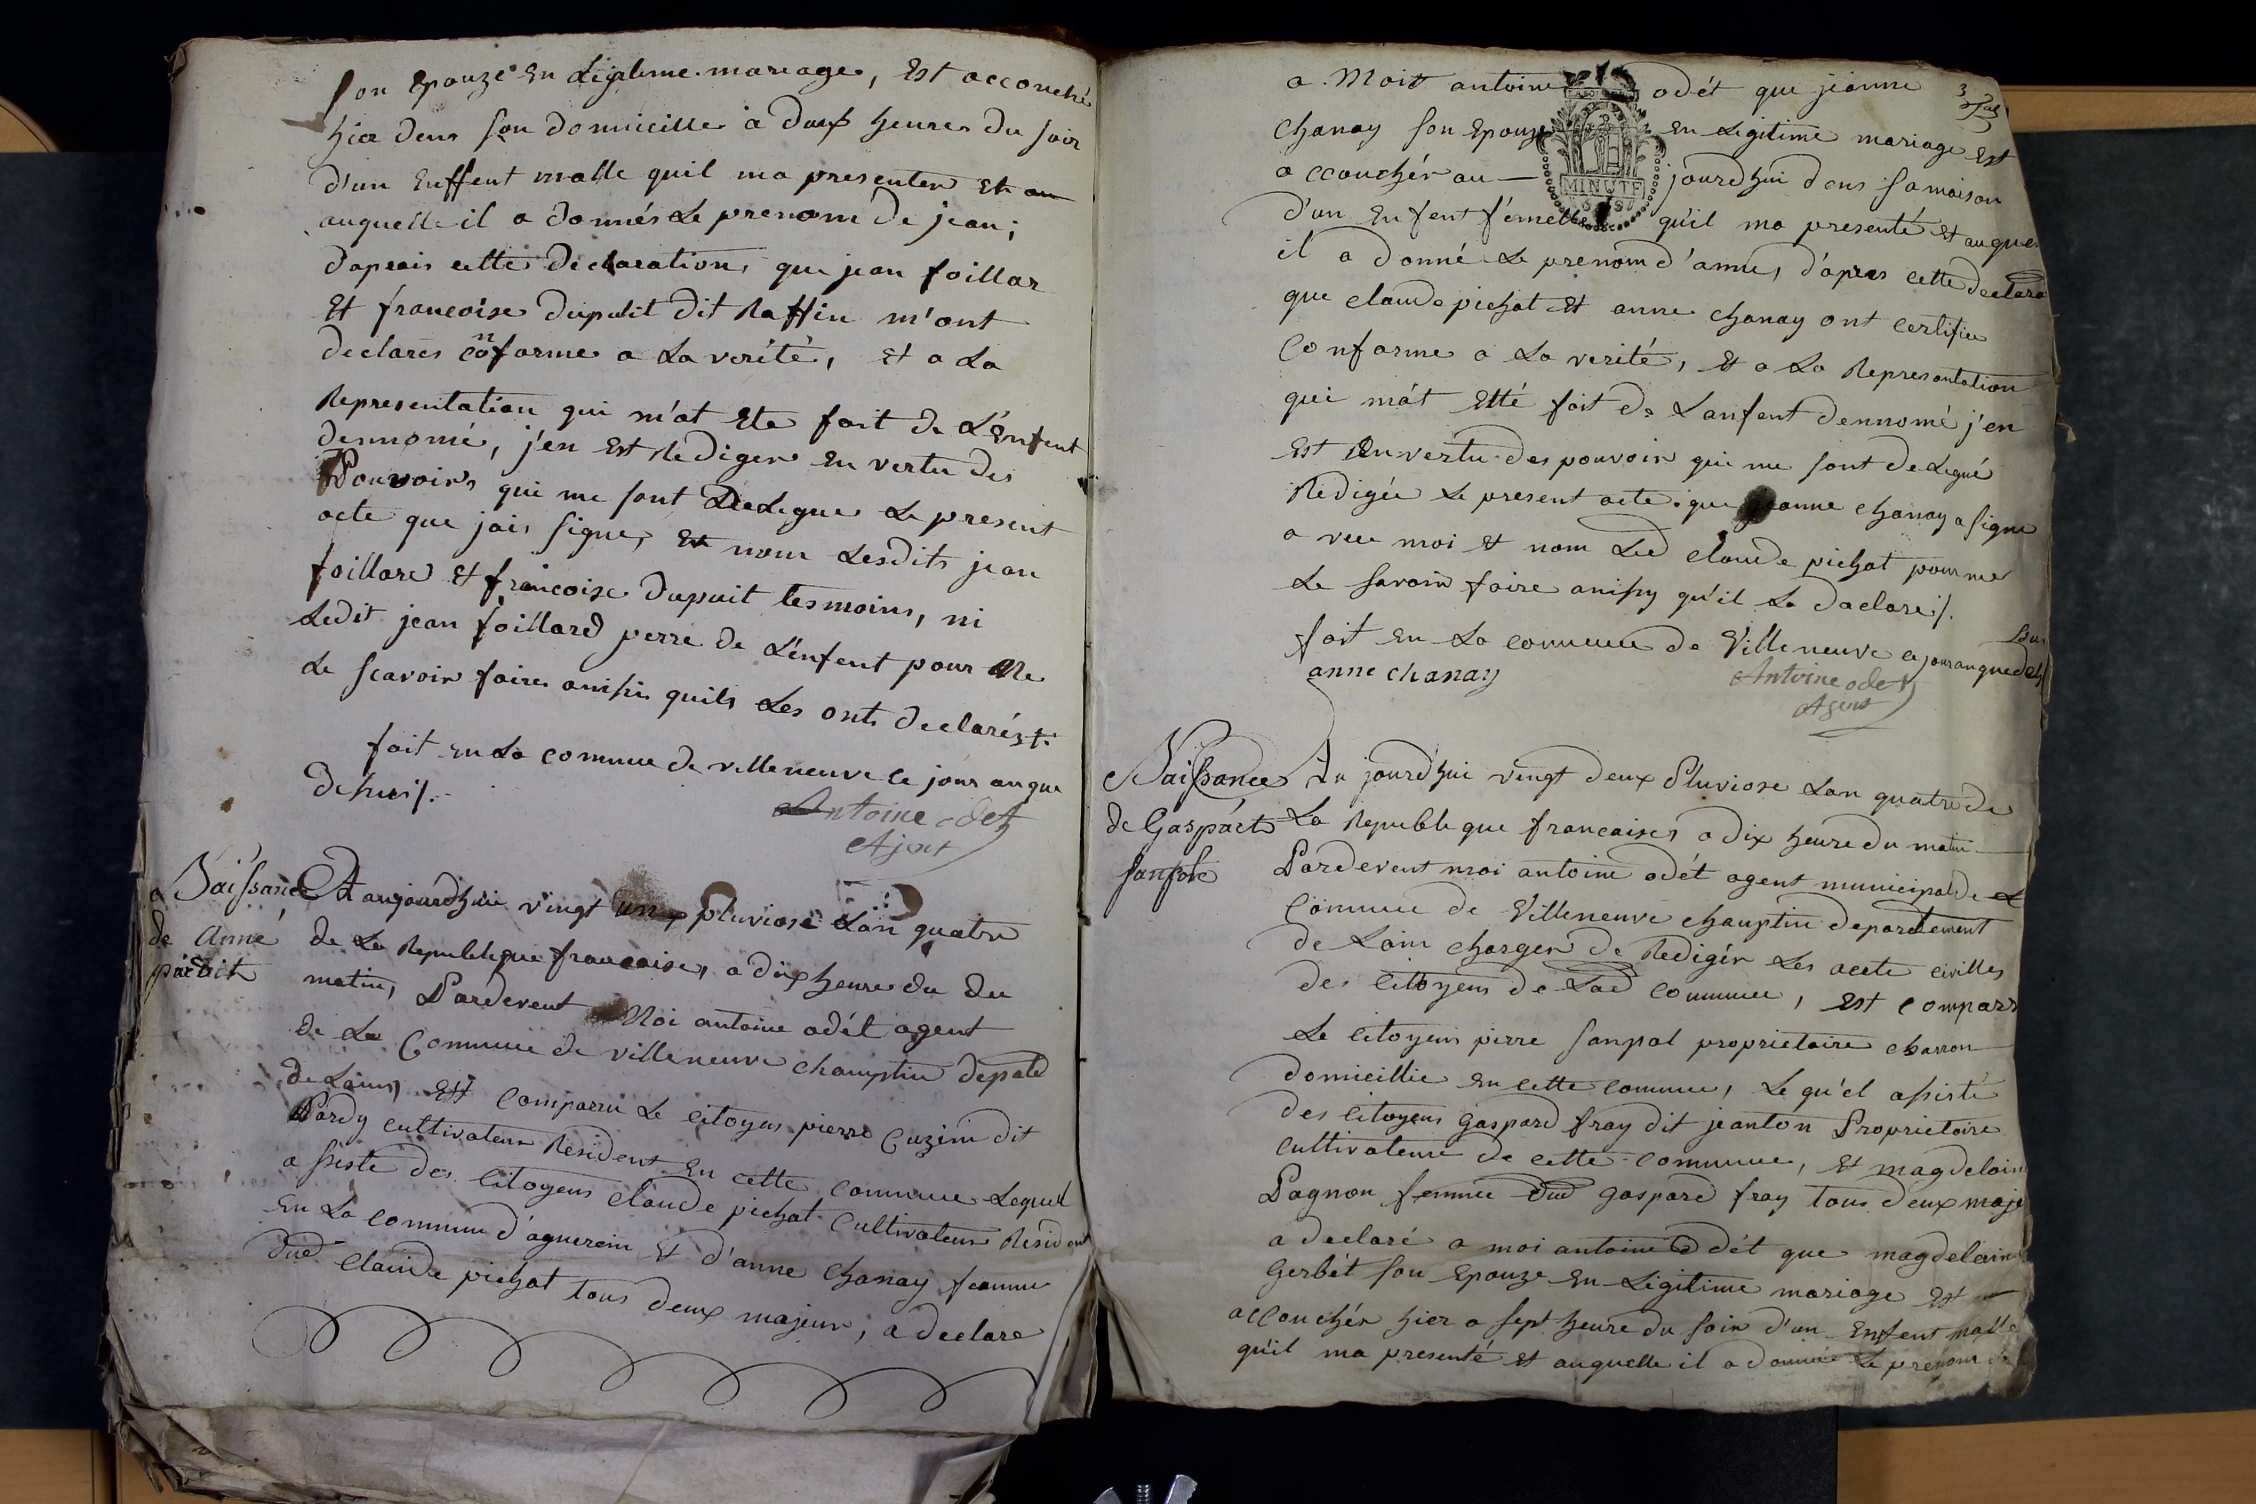 son Epouze En Légitime mariage, Est accouché
hier dens son domicille a deux heures du soir
d'un Enffent malle quil ma presenter Et au
auquelle il a donnés Le prenom de jean;
dapreis cette declaration, que jean foillar
Et francoise duputit dit Raffin m'ont
declarés conforme a La verité, et a La
Representation qui m'at Ete fait de L'Enfent
dennomé, j'en Est Rediger En vertu des
Pouvoirs qui me sont deLegue Le present
acte que jais signe, Et nom Lesdits jean
foillard Et francoise dupuit tesmoins, ni
Ledit jean foillard perre de L'enfent pour Ne
Le scavoir faire ainsin quils Les onts declarés
fait En La commue de villeneuve Le jour au que
dehuis.
Antoine odet
Ajent
Naissance
de Anne
pardit
Et aujourdhui vingt un pluviose Lan quatre
de La Republique francaise, a dix heure du du
matin, Pardevent Moi antoine odét agent
de La Commue de villeneuve champtin depate
de Lain, Est comparru Le citoyen pierre Cuzin dit
Pardy cultivateur Resident En cette commue Lequel
assiste des citoyens claude pichat cultivateur Resident
En La commue d'agnerein Et d'anne chanay feamme
dud claude pichat tous deux majeur, a declare
3
a Moit antoine odét que jeanne
chanay son Epouze En Legitime mariage Est
accouchér au jourdhui dens sa maison
MINUTE
d'un Enfent fémelle qu'il ma presenté Et auque
il a donné Le prenom d'anne, d'apres cette declara
que claude pichat Et anne chanay ont certifie
conforme a La verité, Et a La Representation
qui m'át Etté fait de Lanfent dennomé j'en
Est En vertu des pouvoir qui me sont deLegué
Redigée Le present acte que anne chanay a signe
avec moi Et nom Led claude pichat pour ne
Le savoir faire ainsy qu'il La declare.
fait En La commue de Villeneuve Le jour auque d
anne chanay
Antoine odet
Agent
Naissance
de Gaspáct
sanpol
Au jourdhui vingt deux Pluviose Lan quatre de
La Republique francaises a dix heure du matin
Pardevent moi antoine odét agent municipal de L
Commue de Villeneuve champtin departement
de Lain charger de Redigér Les acete civilles
des citoyens de Lad commue, Est compars
Le citoyens pierre sanpol proprietaire charron
domicillie En cette commue, Le qu'el asisté
des citoyens gaspard fray dit jeanton Proprietaire
cultivateur de cette commue, Et magdelain
Pagnon femme dud gaspard fray tous deux maje
a declaré a moi antoine odét que magdelaine
Gerbét son Epouze En Légitime mariage Est
accouchér hier a sept heure du soir d'un Enfent malle
qu'il ma presenté Et auquelle il a donnée Le prenom de